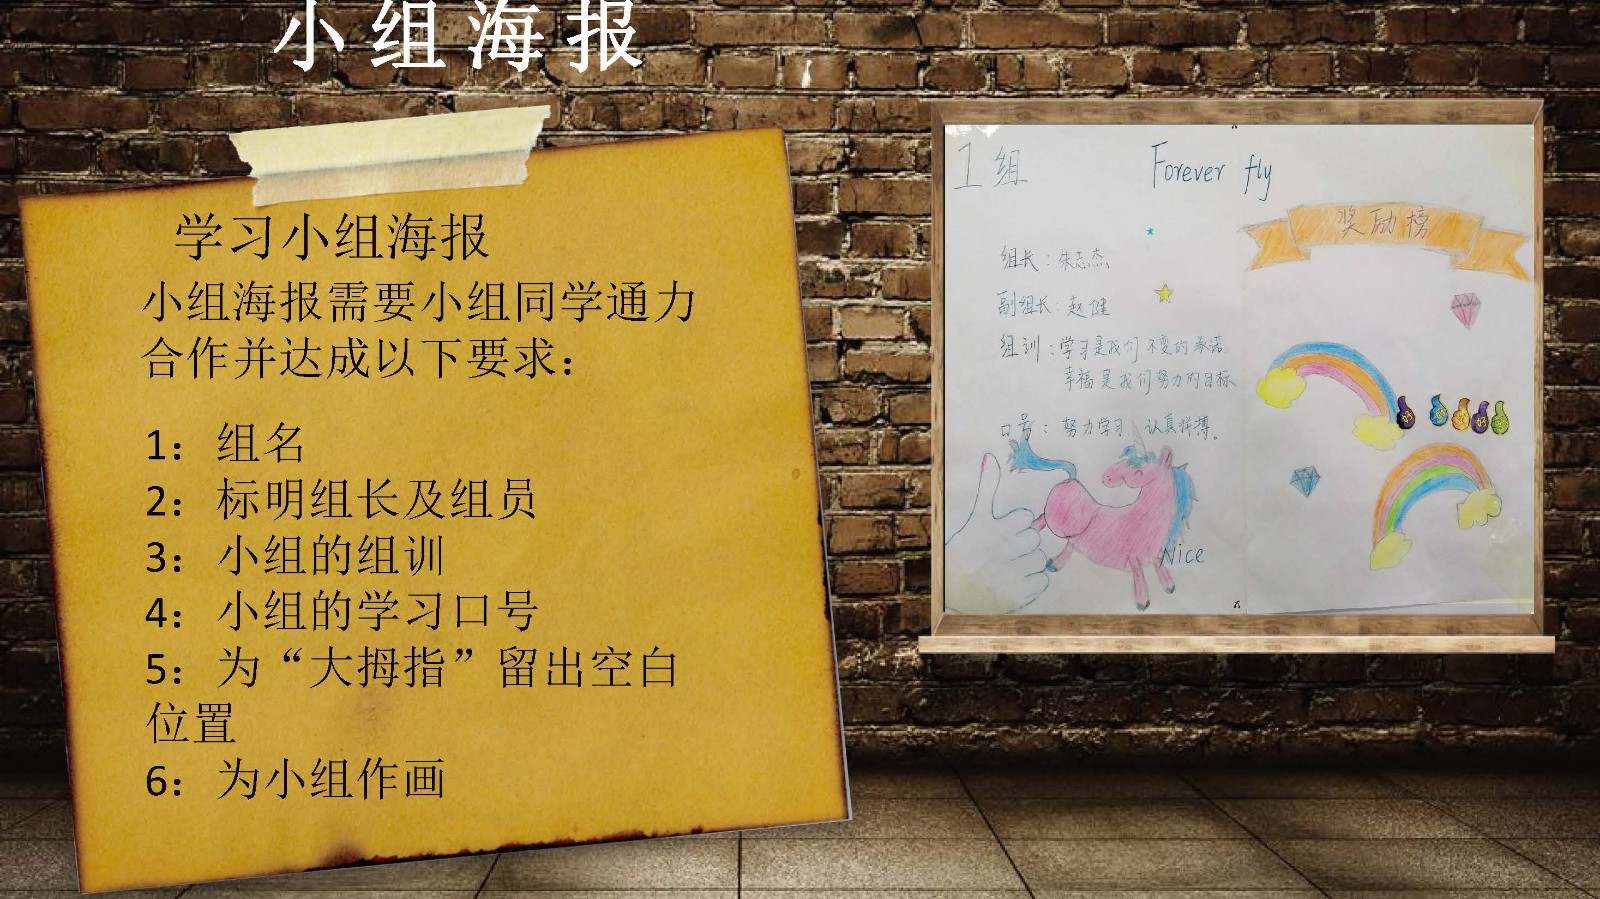 小组海报
学习小组海报
小组海报需要小组同学通力
合作并达成以下要求：
1：组名
2：标明组长及组员
3：小组的组训
4：小组的学习口号
5：为“大拇指”留出空白
位置
6：为小组作画
1组
Forever fly
奖励榜
组长：朱志杰
副组长：赵健
组训：学习是我们不变的承诺
幸福是我们努力的目标
口号：努力学习、认真拼搏。
Nice